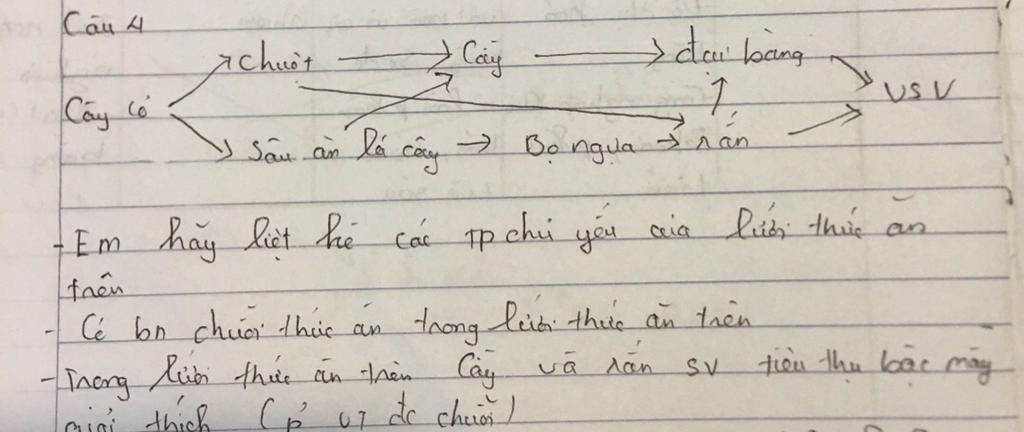 Câu 4
chuột → Cầy → đại bàng
Cây cỏ VSV
Sâu ăn lá cây → Bọ ngựa → rắn
- Em hãy liệt kê các TP chủ yếu của lưới thức ăn
trên
- Có bn chuỗi thức ăn trong lưới thức ăn trên
- Trong lưới thức ăn trên Cầy và rắn SV tiêu thụ bậc mấy
giải thích ( chuỗi)